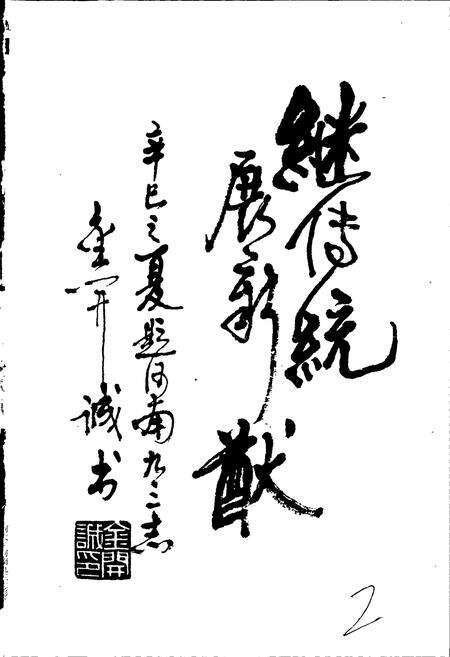 继传统
展新猷
辛巳之夏题河南九三志
金开诚书
金開誠印
2